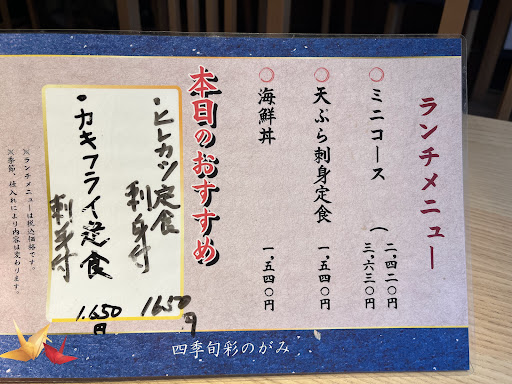 ランチメニュー
○ミニコース(二、四二〇円
三、六三〇円
○天ぷら刺身定食 一、五四〇円
○海鮮丼 一、五四〇円
本日のおすすめ
・ヒレカツ定食 1650円
刺身付
・カキフライ定食 1,650円
刺身付
※ランチメニューは税込価格です。
※季節、値入れにより内容は変わります。
四季旬彩のがみ